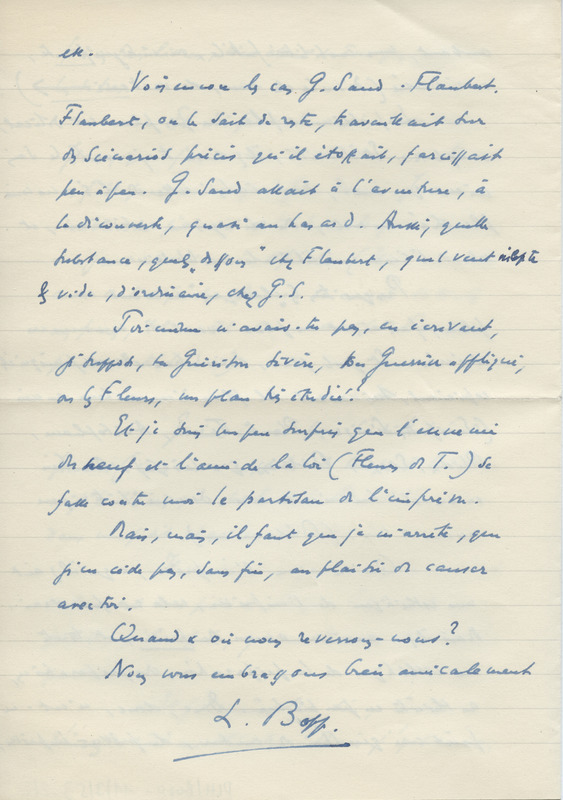 etc.
Vois encore le cas G. Sand - Flaubert.
Flaubert, on le sait de reste, travaillait sur
des scénarios précis qu'il étoffait, farcissait
peu à peu. G. Sand allait à l'aventure, à
la découverte, quasi au hasard. Aussi, quelle
substance, quels "dessous" chez Flaubert, quel vent
& vide, d'ordinaire, chez G. S.
Toi-même n'avais-tu pas, en écrivant,
je suppose, ta Guérison sévère, ton Guerrier appliqué,
ou les Fleurs, un plan très étudié?
Et je suis un peu surpris que l'ennemi
du neuf et l'ami de la loi (Fleurs de T.) se
fasse contre moi le partisan de l'imprévu.
Mais, mais, il faut que je m'arrête, que
je ne cède pas, sans fin, au plaisir de causer
avec toi.
Quand & où nous reverrons-nous?
Nous vous embrassons bien amicalement
L. Bopp.